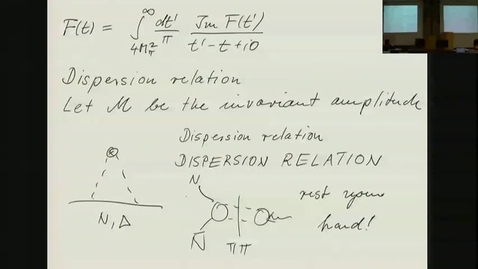 F(t) = ∫_{4M_π^2}^{∞} dt'/π Im F(t')/(t' - t + i0)
Dispersion relation
Let M be the invariant amplitude
Dispersion relation
DISPERSION RELATION
N
rest your
hand!
N, Δ
N̄
ππ